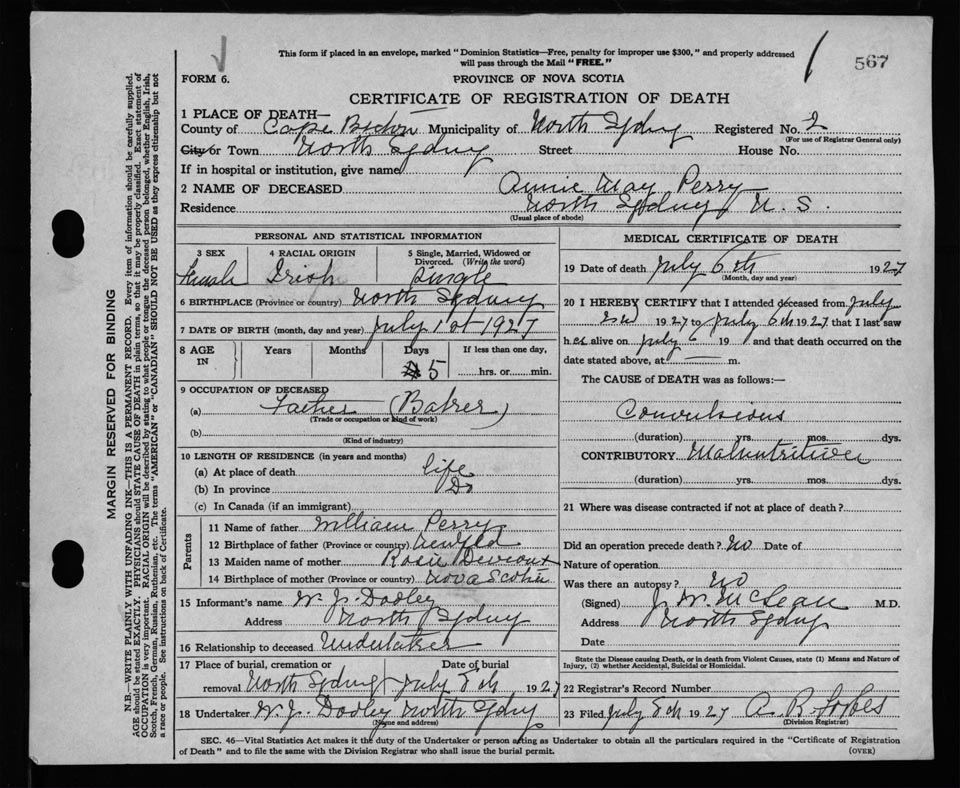 This form if placed in an envelope, marked "Dominion Statistics—Free, penalty for improper use $300," and properly addressed
will pass through the Mail "FREE."
567
FORM 6.
PROVINCE OF NOVA SCOTIA
CERTIFICATE OF REGISTRATION OF DEATH
1 PLACE OF DEATH—
County of Cape Breton Municipality of North Sydney Registered No. 2
(For use of Registrar General only)
City or Town North Sydney Street House No.
If in hospital or institution, give name
2 NAME OF DECEASED Annie May Perry
Residence North Sydney N. S.
(Usual place of abode)
PERSONAL AND STATISTICAL INFORMATION
3 SEX 4 RACIAL ORIGIN 5 Single, Married, Widowed or
Divorced. (Write the word)
Female Irish Single
6 BIRTHPLACE (Province or country) North Sydney
7 DATE OF BIRTH (month, day and year) July 1st 1927
8 AGE IN Years Months Days If less than one day,
5 hrs. or min.
9 OCCUPATION OF DECEASED
(a) Father (Baker)
(Trade or occupation or kind of work)
(b)
(Kind of industry)
10 LENGTH OF RESIDENCE (in years and months)
(a) At place of death life
(b) In province Do
(c) In Canada (if an immigrant)
Parents
11 Name of father William Perry
12 Birthplace of father (Province or country) Newfld
13 Maiden name of mother Rosie
14 Birthplace of mother (Province or country) Nova Scotia
15 Informant's name W. J. Dooley
Address North Sydney
16 Relationship to deceased Undertaker
17 Place of burial, cremation or Date of burial
removal North Sydney July 8th 1927
18 Undertaker W. J. Dooley North Sydney
(Name and address)
MEDICAL CERTIFICATE OF DEATH
19 Date of death July 6th 1927
(Month, day and year)
20 I HEREBY CERTIFY that I attended deceased from July
2nd 1927 to July 6th 1927 that I last saw
h er alive on July 6 19 and that death occurred on the
date stated above, at — m.
The CAUSE of DEATH was as follows:—
Convulsions
(duration) yrs. mos. dys.
CONTRIBUTORY Malnutrition
(duration) yrs. mos. dys.
21 Where was disease contracted if not at place of death?
Did an operation precede death? No Date of
Nature of operation
Was there an autopsy? No
(Signed) J. W. McLean M.D.
Address North Sydney
Date
State the Disease causing Death, or in death from Violent Causes, state (1) Means and Nature of
Injury, (2) whether Accidental, Suicidal or Homicidal.
22 Registrar's Record Number
23 Filed July 8th 1927 A. R. Forbes
(Division Registrar)
SEC. 46—Vital Statistics Act makes it the duty of the Undertaker or person acting as Undertaker to obtain all the particulars required in the "Certificate of Registration
of Death" and to file the same with the Division Registrar who shall issue the burial permit.
(OVER)
MARGIN RESERVED FOR BINDING
N.B.—WRITE PLAINLY WITH UNFADING INK—THIS IS A PERMANENT RECORD. Every item of information should be carefully supplied.
AGE should be stated EXACTLY. PHYSICIANS should STATE CAUSE OF DEATH in plain terms, so that it may be properly classified. Exact statement of
OCCUPATION is very important. RACIAL ORIGIN will be described by stating to what people or tongue the deceased person belonged, whether English, Irish,
Scotch, French, German, Russian, Ruthenian, etc. The terms "AMERICAN" or "CANADIAN" SHOULD NOT BE USED as they express citizenship but not
a race or people. See instructions on back of Certificate.